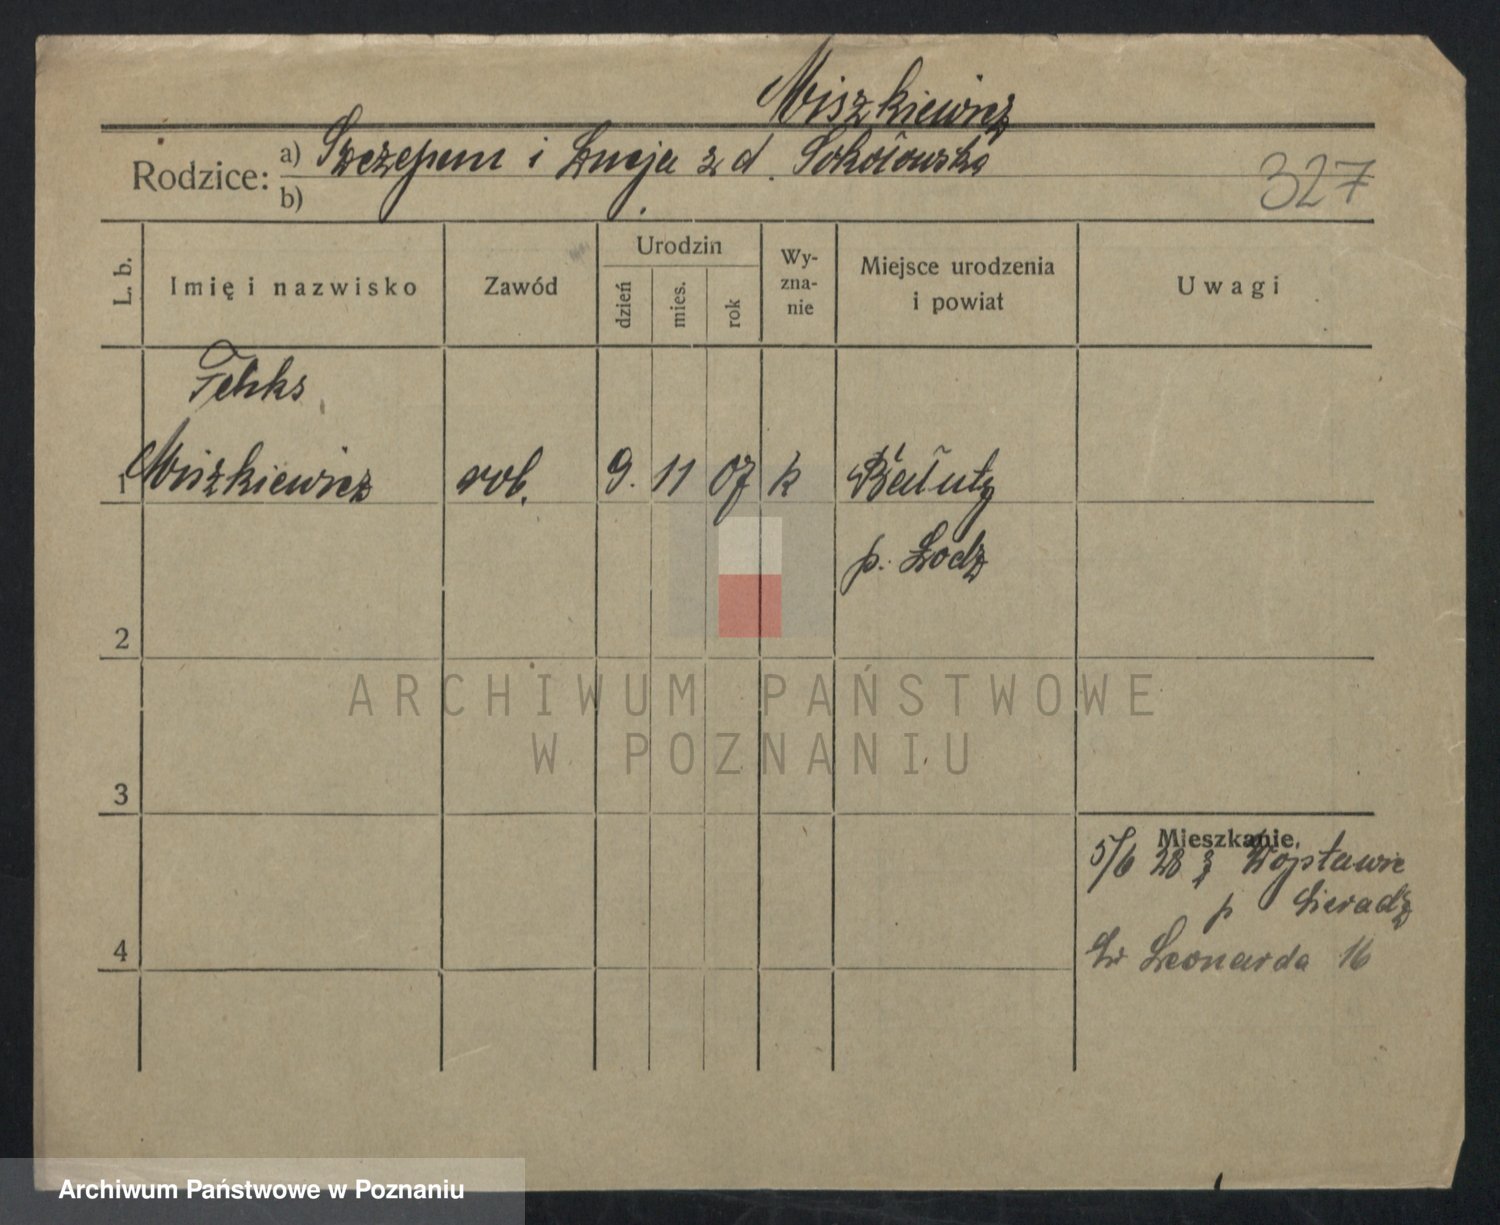 Miszkiewicz
Rodzice: a) Szczepan i Łucja z d. Sokołowska
b)
327
L. b.
Imię i nazwisko
Zawód
Urodzin
dzień
mies.
rok
Wy-
zna-
nie
Miejsce urodzenia
i powiat
Uwagi
Feliks
1 Miszkiewicz rob. 9. 11 07 k Bałuty
p. Łodz
2
3
4
Mieszkanie.
5/6 28 z Wojsławic
p Sieradz
Św Leonarda 16
ARCHIWUM PAŃSTWOWE
W POZNANIU
Archiwum Państwowe w Poznaniu